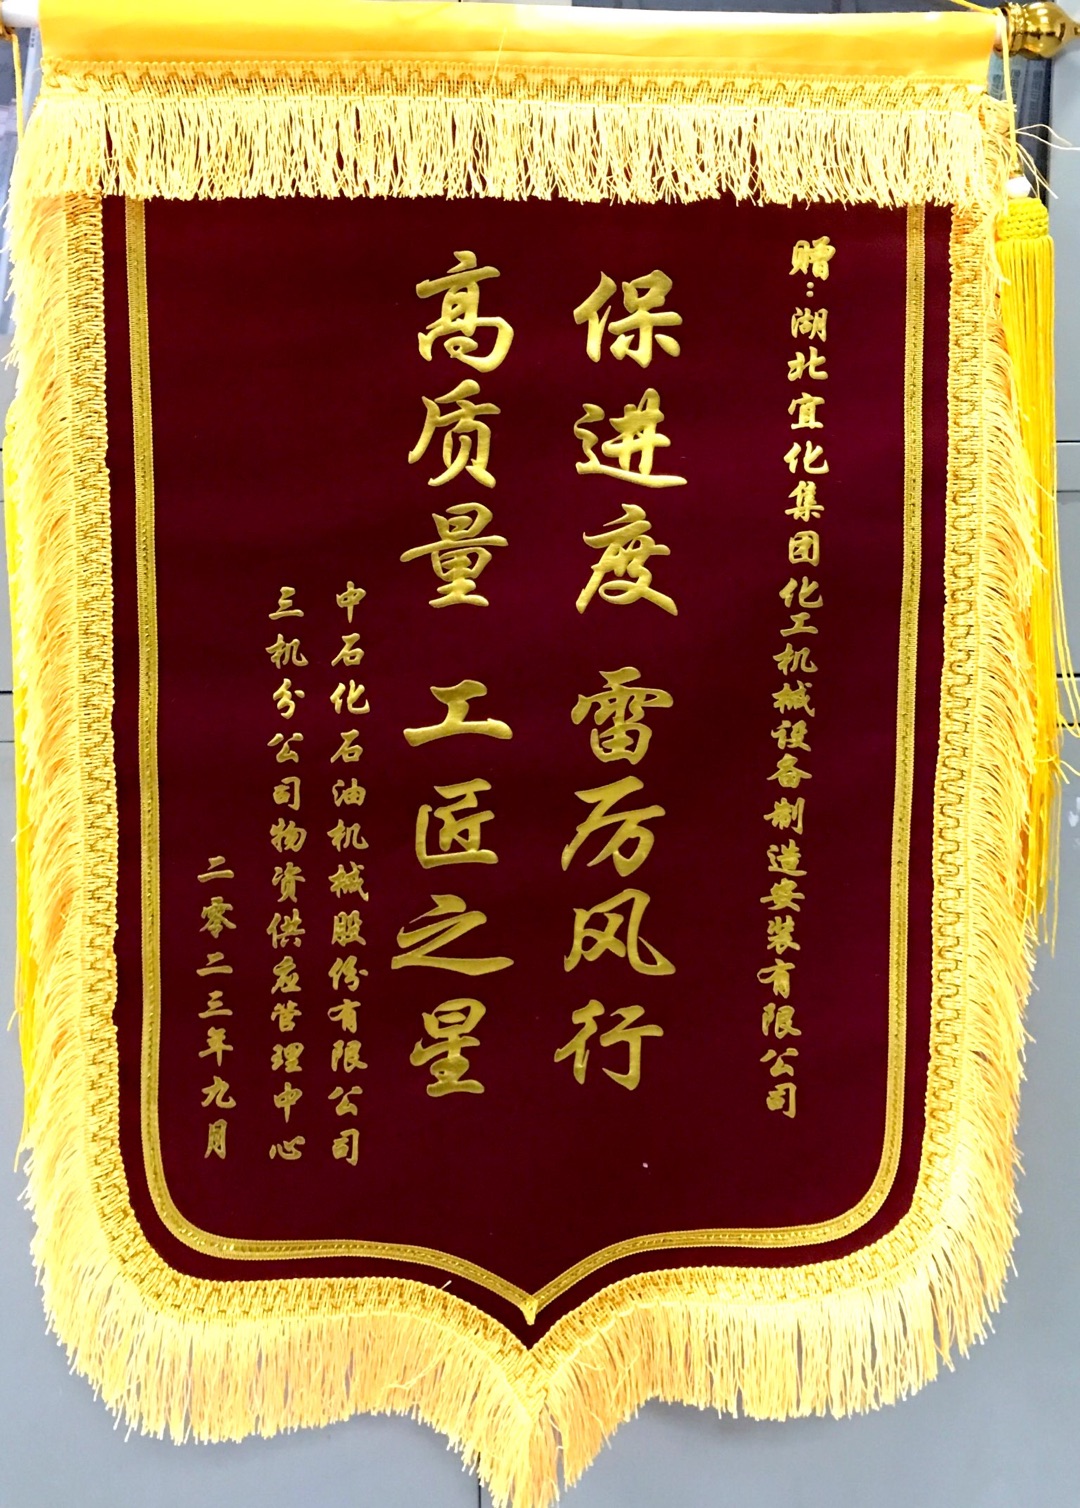 赠:湖北宜化集团化工机械设备制造安装有限公司
保进度 雷厉风行
高质量 工匠之星
中石化石油机械股份有限公司
三机分公司物资供应管理中心
二零二三年九月